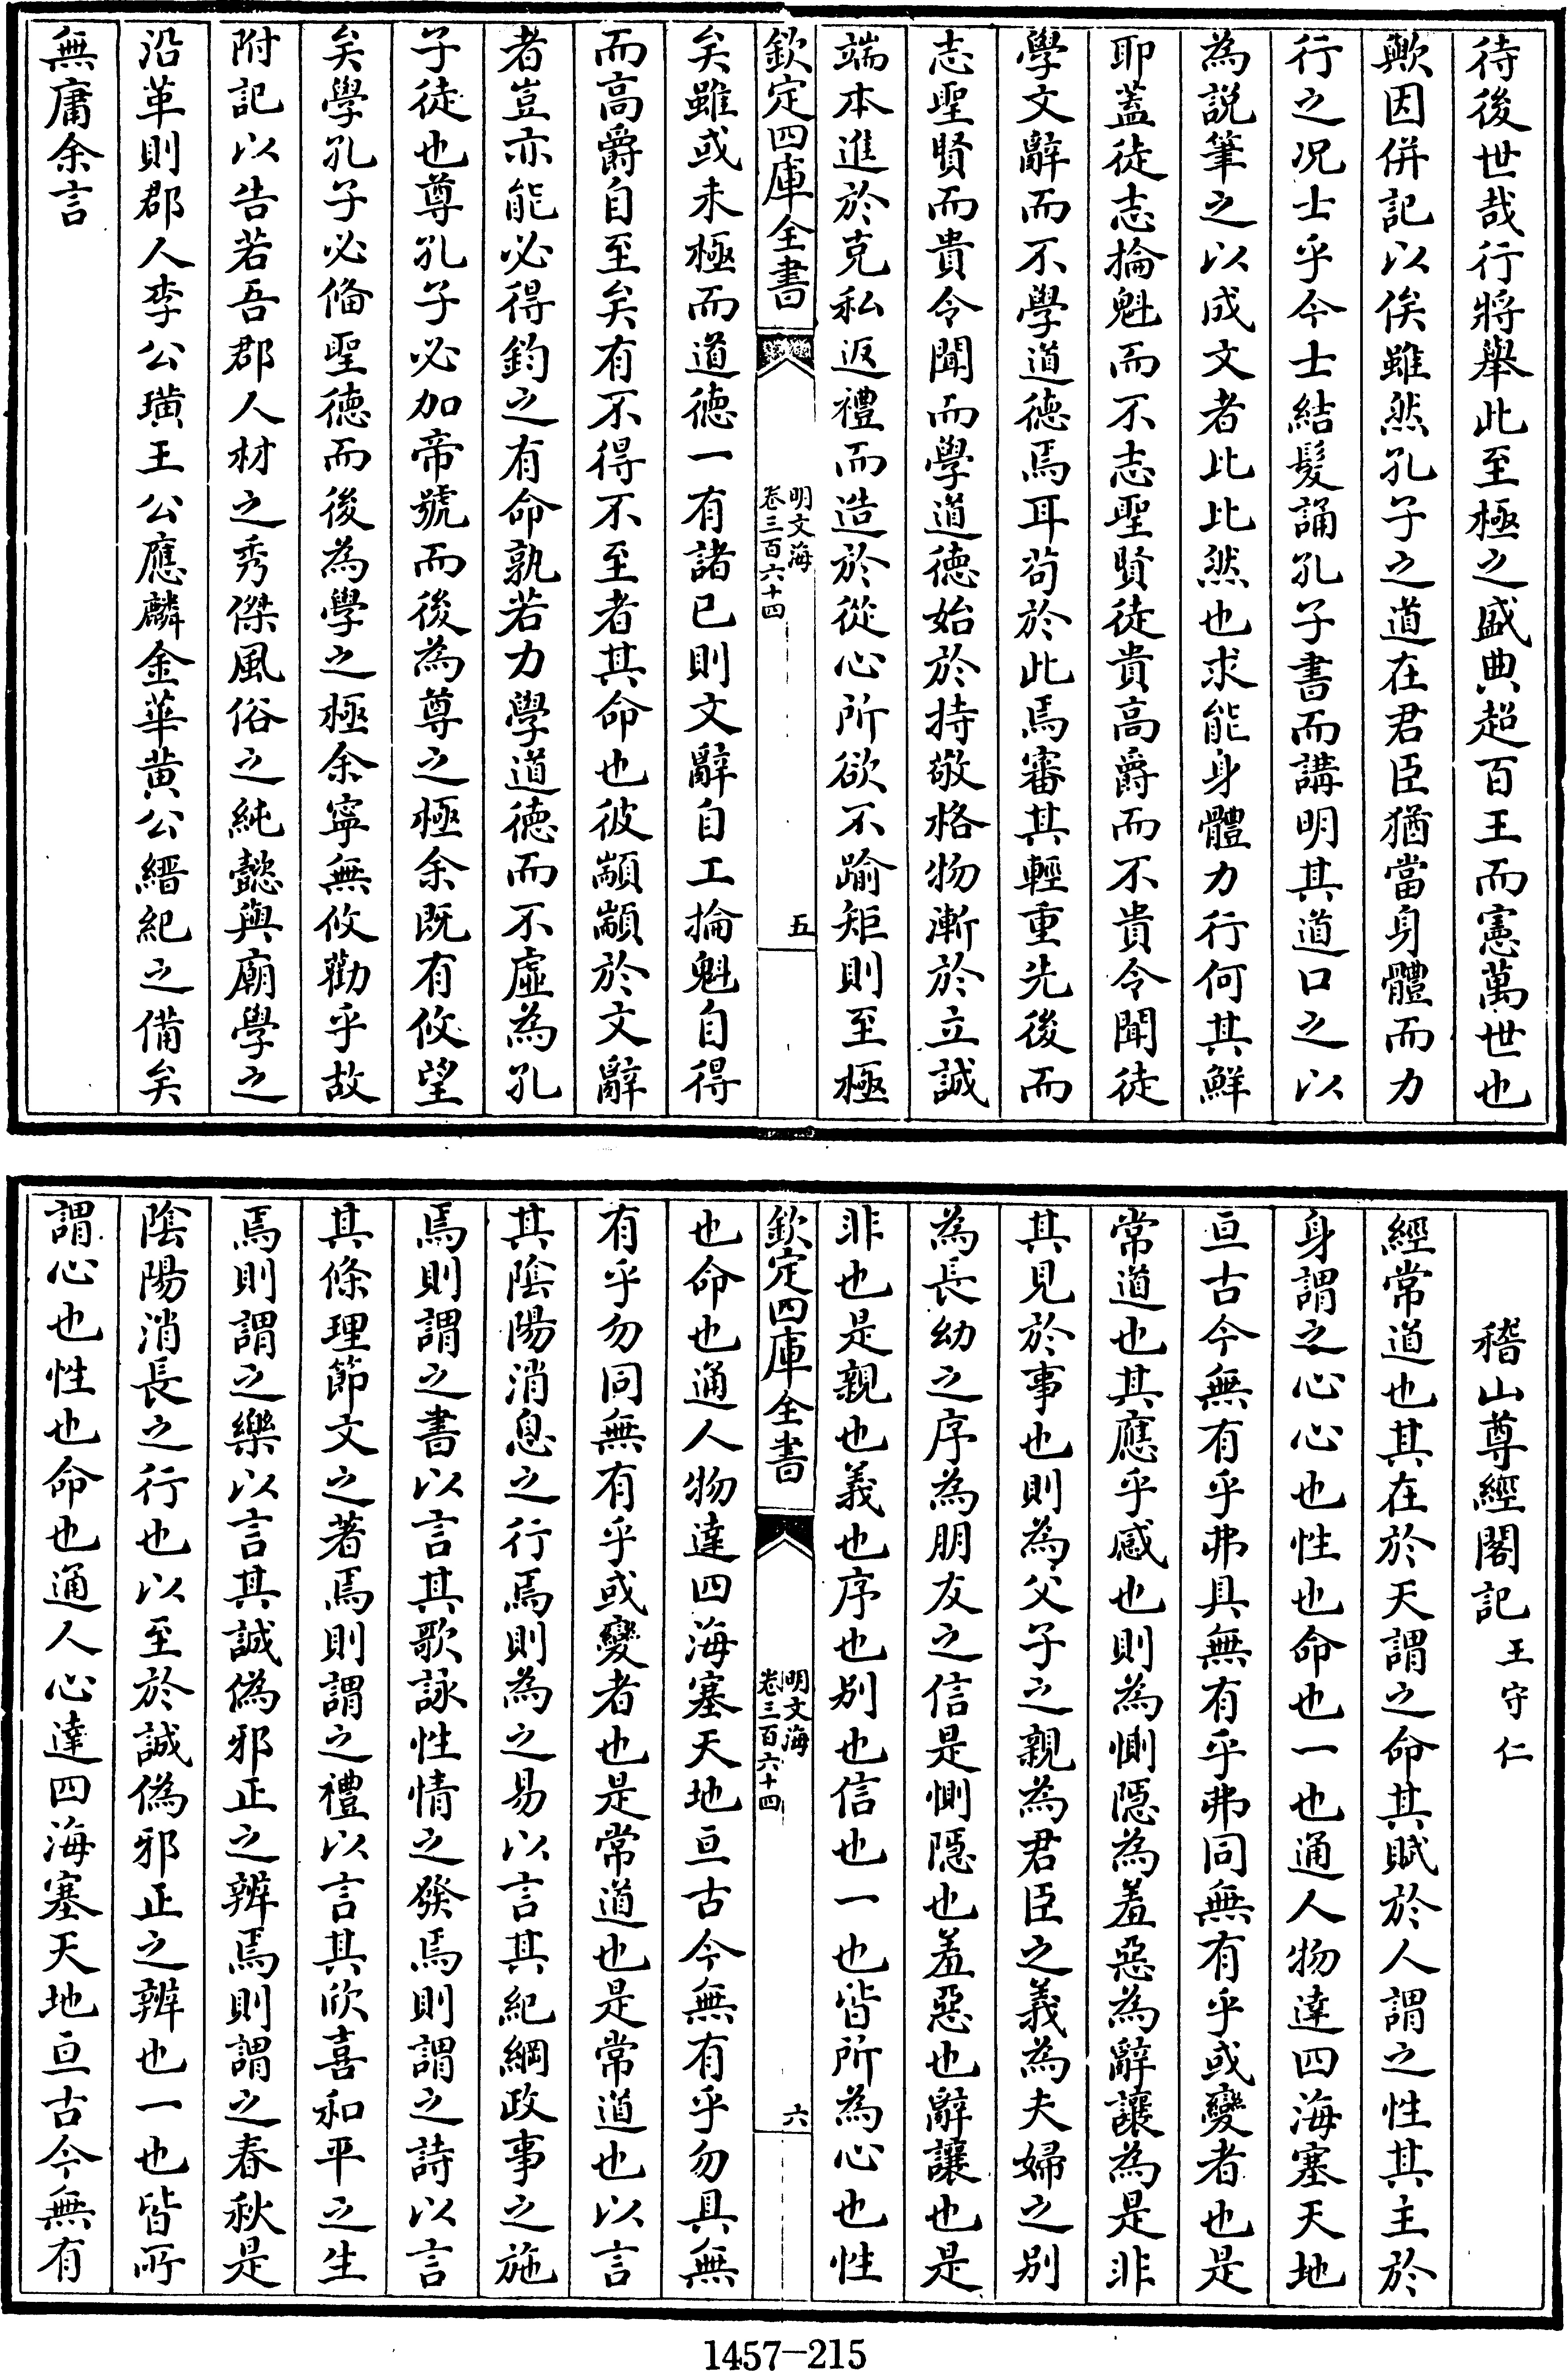 待後世哉行將舉此至極之盛典超百王而憲萬世也
歟因併記以俟雖然孔子之道在君臣猶當身體而力
行之况士乎今士結髮誦孔子書而講明其道口之以
為說筆之以成文者比比然也求能身體力行何其鮮
耶蓋徒志掄魁而不志聖賢徒貴高爵而不貴令聞徒
學文辭而不學道德焉耳茍於此焉審其輕重先後而
志聖賢而貴令聞而學道德始於持敬格物漸於立誠
端本進於克私返禮而造於從心所欲不踰矩則至極
欽定四庫全書
明文海
卷三百六十四
五
矣雖或未極而道德一有諸已則文辭自工掄魁自得
而高爵自至矣有不得不至者其命也彼顓顓於文辭
者豈亦能必得鈞之有命孰若力學道德而不虛為孔
子徒也尊孔子必加帝號而後為尊之極余既有攸望
矣學孔子必備聖德而後為學之極余寧無攸勸乎故
附記以告若吾郡人材之秀傑風俗之純懿與廟學之
沿革則郡人李公璜王公應麟金華黄公縉紀之備矣
無庸余言
稽山尊經閣記 王守仁
經常道也其在於天謂之命其賦於人謂之性其主於
身謂之心心也性也命也一也通人物達四海塞天地
亘古今無有乎弗具無有乎弗同無有乎或變者也是
常道也其應乎感也則為惻隱為羞惡為辭讓為是非
其見於事也則為父子之親為君臣之義為夫婦之别
為長幼之序為朋友之信是惻隱也羞惡也辭讓也是
非也是親也義也序也别也信也一也皆所為心也性
欽定四庫全書
明文海
卷三百六十四
六
也命也通人物達四海塞天地亘古今無有乎勿具無
有乎勿同無有乎或變者也是常道也是常道也以言
其陰陽消息之行焉則為之易以言其紀綱政事之施
焉則謂之書以言其歌詠性情之發焉則謂之詩以言
其條理節文之著焉則謂之禮以言其欣喜和平之生
焉則謂之樂以言其誠偽邪正之辨焉則謂之春秋是
陰陽消長之行也以至於誠偽邪正之辨也一也皆所
謂心也性也命也通人心達四海塞天地亘古今無有
1457-215